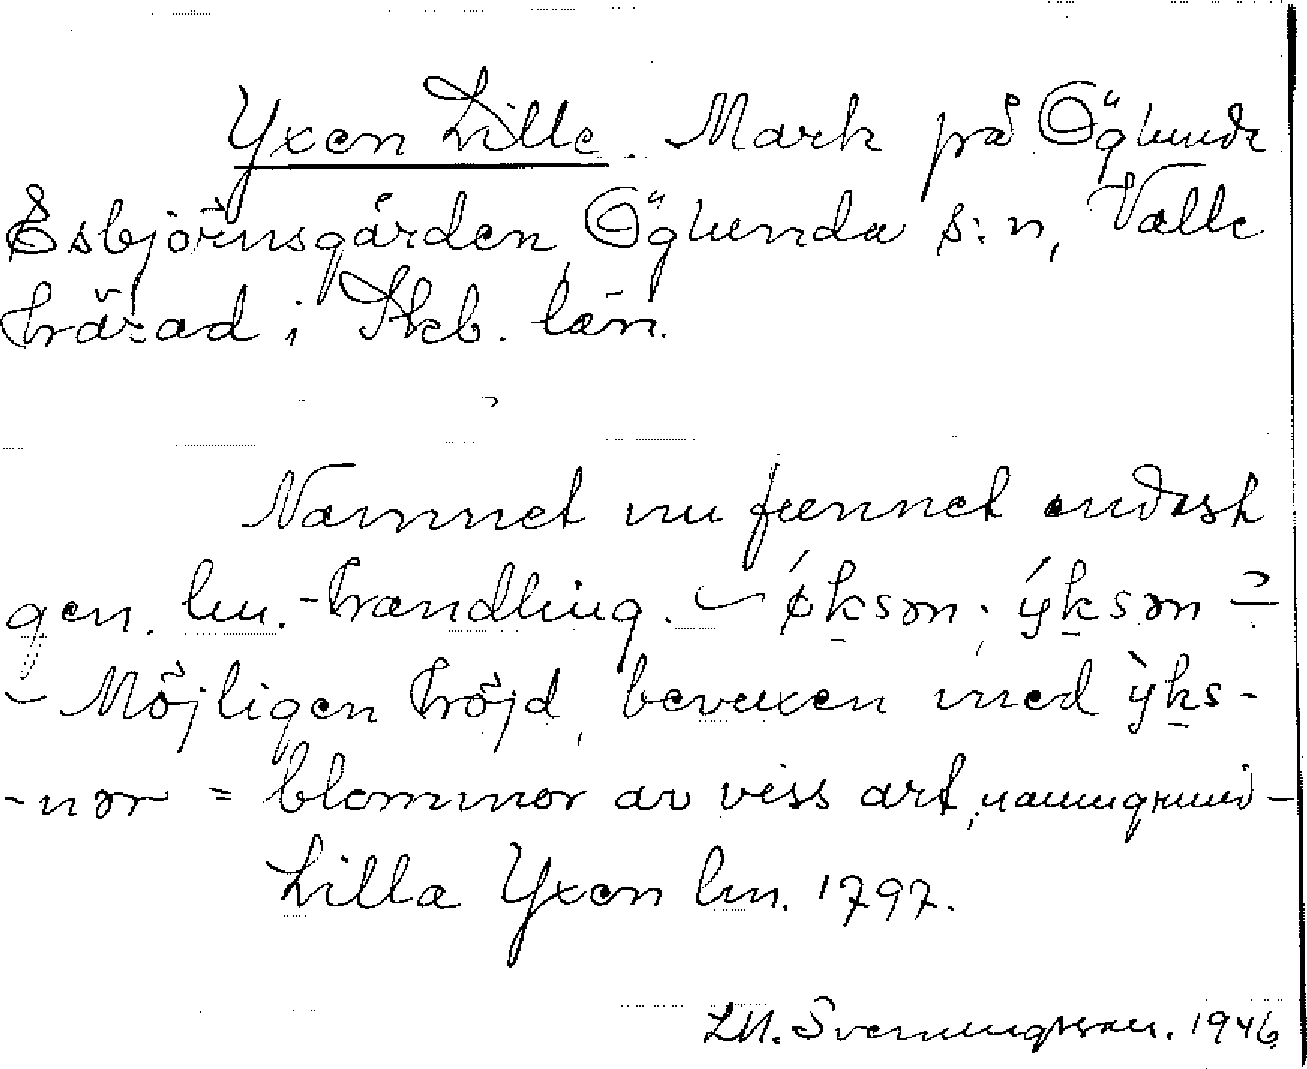 Yxen Lille. Mark på Öglunda
Esbjörnsgården, Öglunda s:n, Valle
härad i Skb. län.
Namnet nu funnet endast
gen. lm.-handling. – ǿksən; ýksən?
– Möjligen höjd, bevuxen med ỳks-
-nər = blommor av viss art, namngrund –
Lilla Yxen lm. 1797.
LM. Svenungsson. 1946